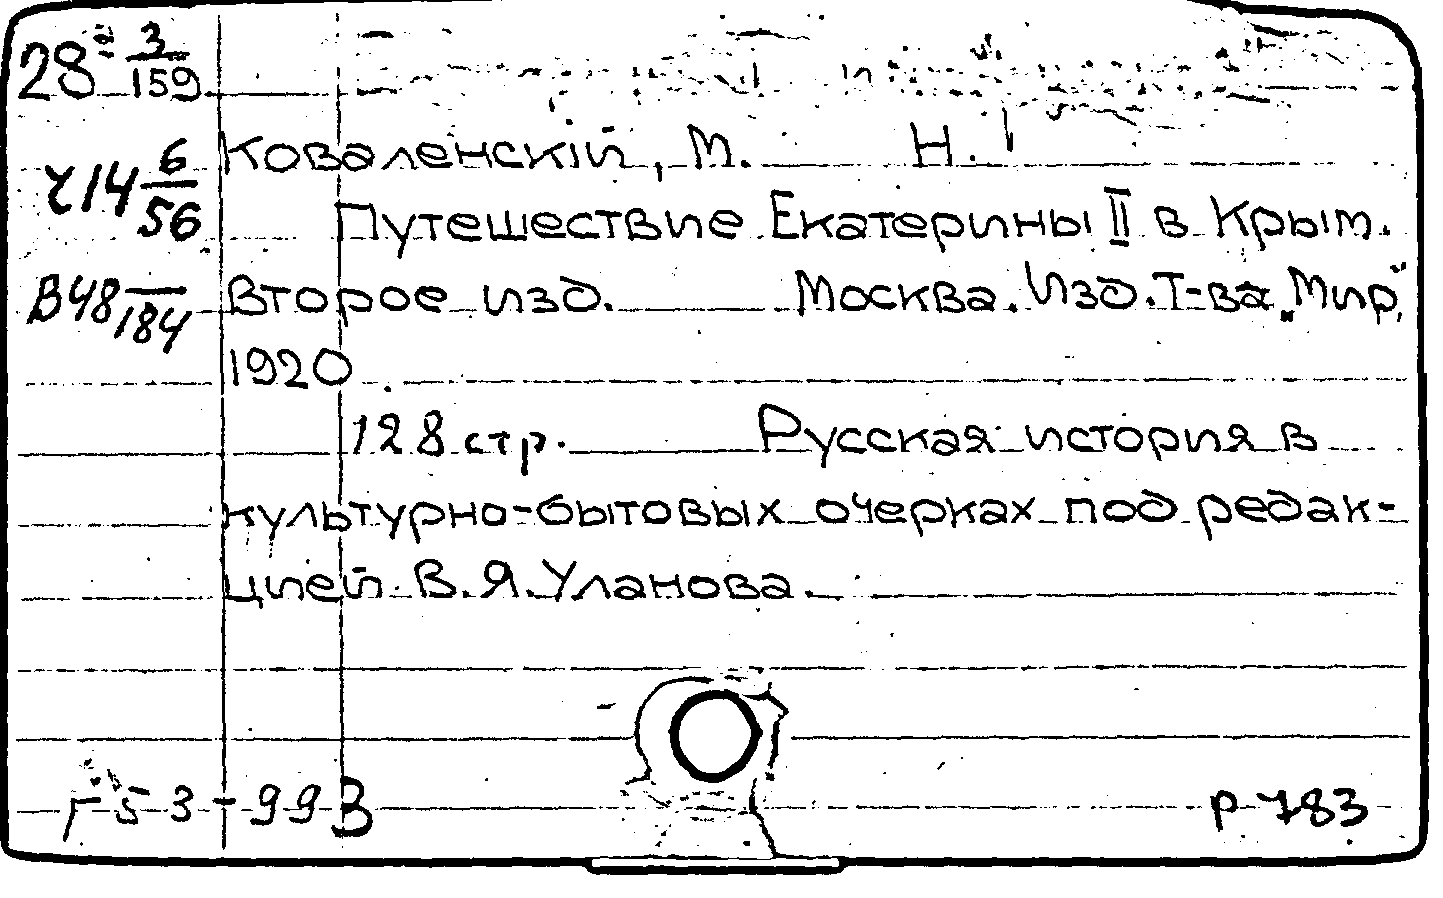 28 а 3/159
Коваленскій, М. Н.
Ч14 6/56
Путешествие Екатерины II в Крым.
В48 —/184
Второе изд. Москва. Изд. Т-ва „Мир"
1920.
128 стр. Русская история в
культурно-бытовых очерках под редак-
цией В.Я. Уланова.
Г 53-993
Р-783